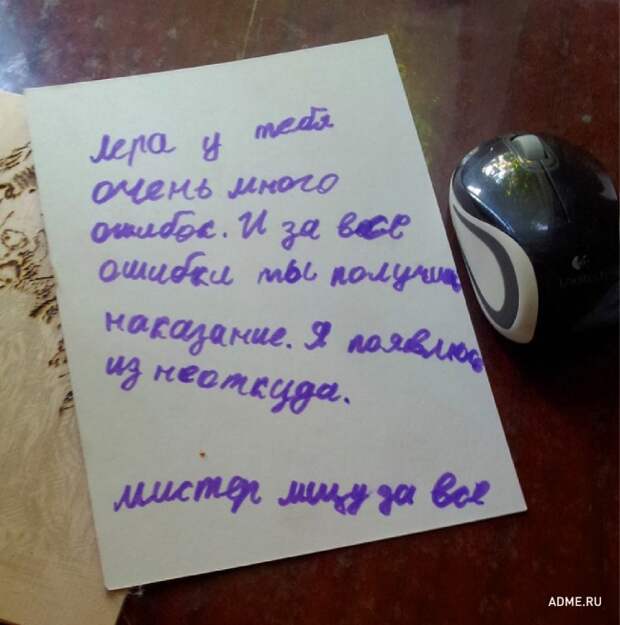 лера у тебя
очень много
ошибок. И за все
ошибки ты получиш
наказание. Я появлюсь
из неоткуда.
мистер мщу за все
ADME.RU